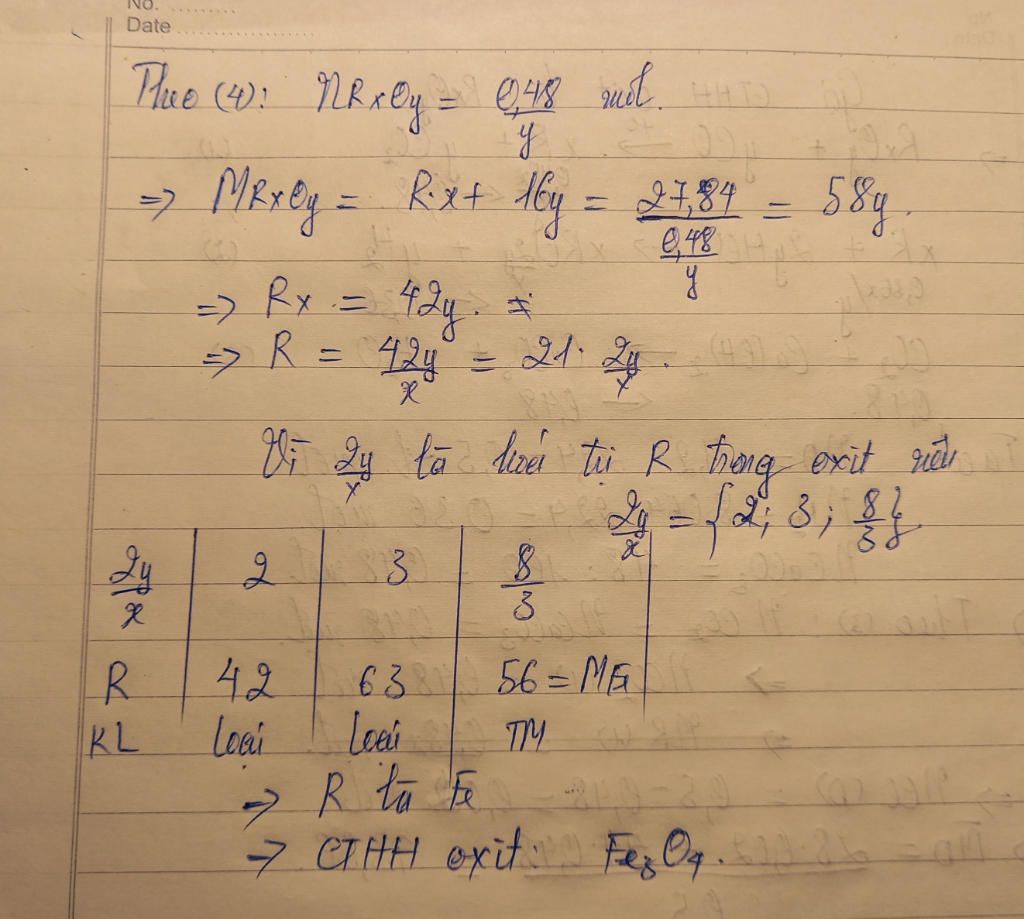 No. .........
Date ....................
Theo (4): nRxOy = 0,48/y mol.
=> MRxOy = R.x + 16y = 27,84/(0,48/y) = 58y.
=> Rx = 42y.
=> R = 42y/x = 21. 2y/x.
Vì 2y/x là hoá trị R trong oxit nên
2y/x = {2; 3; 8/3}
2y/x | 2 | 3 | 8/3
R | 42 | 63 | 56 = MFe
KL | loại | loại | TM
=> R là Fe
=> CTHH oxit: Fe3O4.